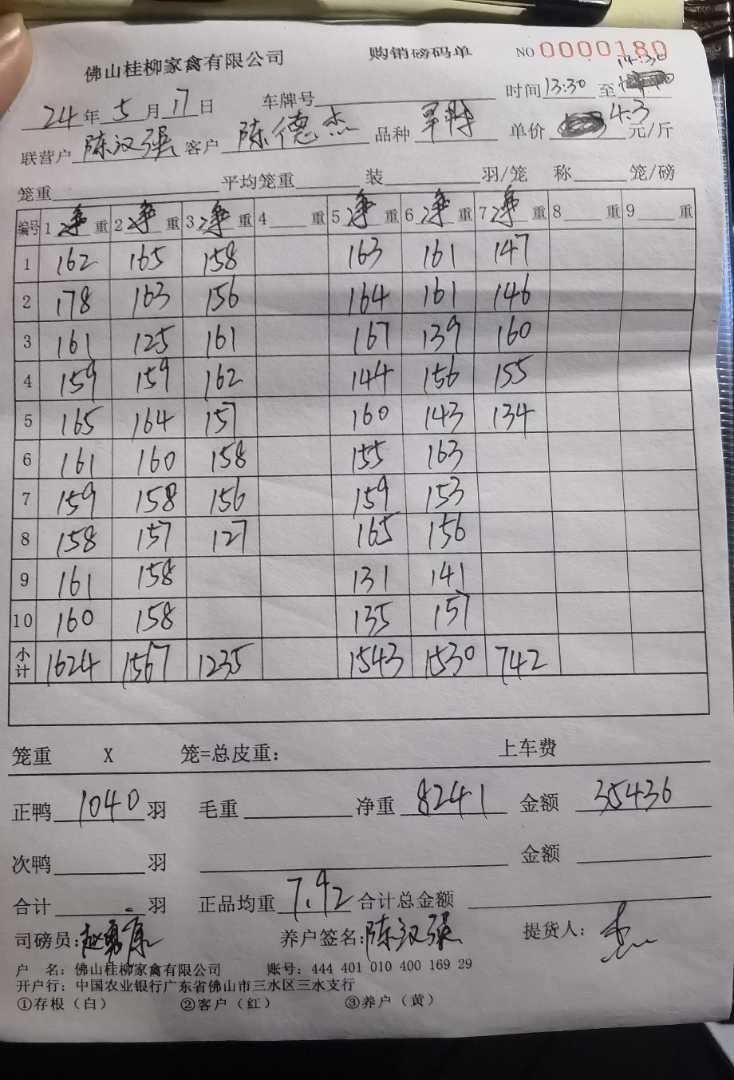 佛山桂柳家禽有限公司 购销磅码单 NO 0000180
24年5月17日 车牌号 时间13:30至14:30
联营户 陈汉强 客户 陈德杰 品种 单价 4.3 元/斤
笼重 平均笼重 装 羽/笼 称 笼/磅
编号 1净重 2净重 3净重 4 重 5净重 6净重 7净重 8 重 9 重
1 162 165 158 163 161 147
2 178 163 156 164 161 146
3 161 125 161 167 139 160
4 159 159 162 144 156 155
5 165 164 157 160 143 134
6 161 160 158 155 163
7 159 158 156 159 153
8 158 157 127 165 156
9 161 158 131 141
10 160 158 135 157
小计 1624 1567 1235 1543 1530 742
笼重 X 笼=总皮重: 上车费
正鸭 1040 羽 毛重 净重 8241 金额 35436
次鸭 羽 金额
合计 羽 正品均重 7.92 合计总金额
司磅员: 养户签名: 陈汉强 提货人: 杰
户 名: 佛山桂柳家禽有限公司 账号: 444 401 010 400 169 29
开户行: 中国农业银行广东省佛山市三水区三水支行
①存根(白) ②客户(红) ③养户(黄)